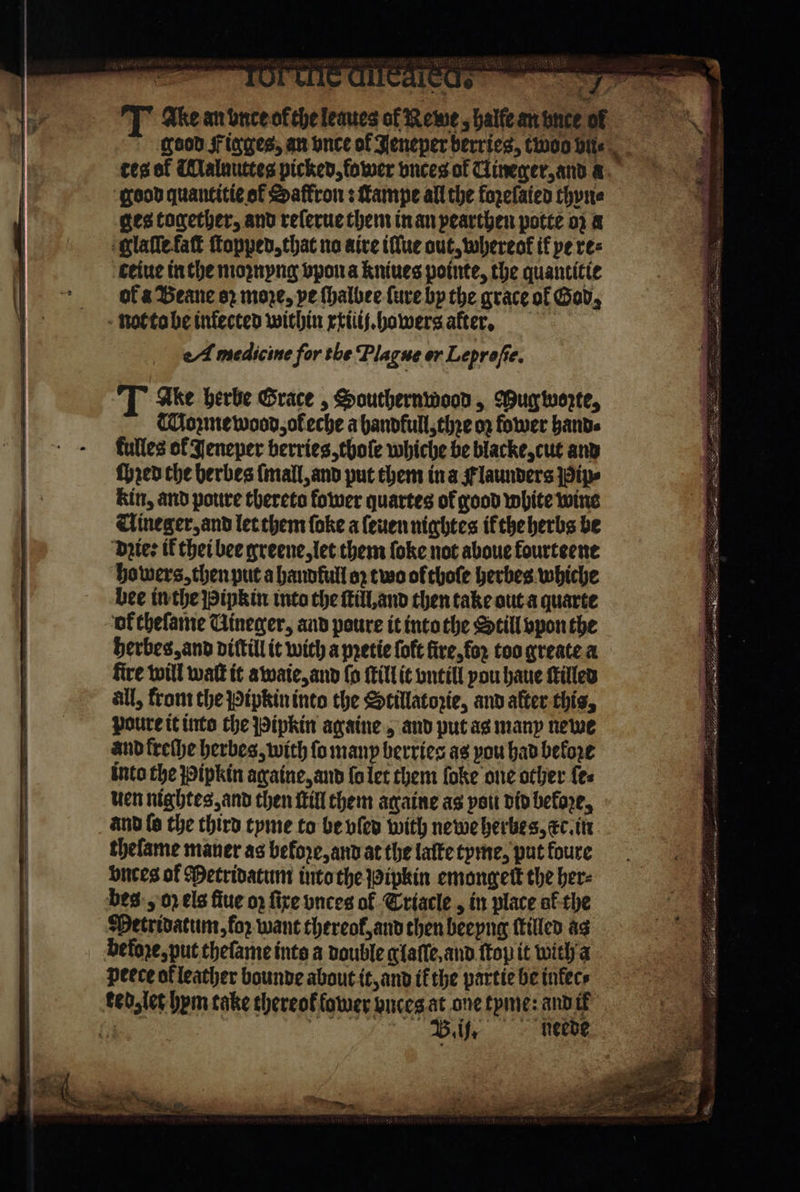 for the diseased. 7
TAke an vnce of the leaues of Rewe, halfe an vnce of
good Figges, an vnce of Ieneper berries, twoo vn-
ces of Walnuttes picked, fower vnces of Vineger, and a
good quantitie of Saffron: stampe all the foresaied thyn-
ges together, and reserue them in an yearthen potte or a
glasse fast stopped, that no aire issue out, whereof if ye re-
ceiue in the mornyng vpon a kniues pointe, the quantitie
of a Beane or more, ye shalbee sure by the grace of God,
not to be infected within xxiiij. howers after.
A medicine for the Plague or Leprosie.
TAke herbe Grace, Southernwood, Mugworte,
Wormewood, of eche a handfull, thre or fower hand-
fulles of Ieneper berries, those whiche be blacke, cut and
shred the herbes small, and put them in a Flaunders Pip-
kin, and poure thereto fower quartes of good white wine
Vineger, and let them soke a seuen nightes if the herbs be
drie: if thei bee greene, let them soke not aboue fourteene
howers, then put a handfull or two of those herbes whiche
bee in the Pipkin into the still, and then take out a quarte
of thesame Vineger, and poure it into the Still vpon the
herbes, and distill it with a pretie soft fire, for too greate a
fire will wast it awaie, and so still it vntill you haue stilled
all, from the Pipkin into the Stillatorie, and after this,
poure it into the Pipkin againe, and put as many newe
and freshe herbes, with so many berries as you had before
into the Pipkin againe, and so let them soke one other se-
uen nightes, and then still them againe as you did before,
and so the third tyme to be vsed with newe herbes, &c. in
thesame maner as before, and at the laste tyme, put foure
vnces of Metridatum into the Pipkin emongest the her-
bes, or els fiue or sixe vnces of Triacle, in place of the
Metridatum, for want thereof, and then beeyng stilled as
before, put thesame into a double glasse, and stop it with a
peece of leather bounde about it, and if the partie be infec-
ted, let hym take thereof fower vnces at one tyme: and if
B.ij. neede